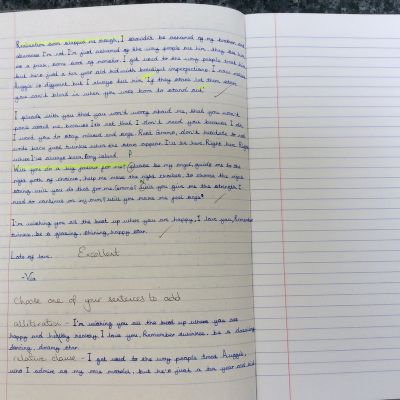 Realisation soon slapped me though, I shouldn't be ashamed of my brother and
obviously I'm not. I'm just ashamed of the way people see him, they see him
as a freak, some sort of monster. I got used to the way people treat him
but he's just a ten year old kid with imperfections. I now
Auggie is different but I always tell him, "if they stare let them stare
you can't blend in when you were born to stand out."
I plead with you that you won't worry about me, that you won't
panic about me, because it's not that I don't need you because I do.
I want you to stay relaxed and safe. Rest Grans, don't hesitate to
back just twinkle when the stars appear. I'll be here. Right here. Right
where I've always been,
Will you do a big favour for me? Please be my angel, guide me to the
right path of choices, help me make the right choices, to choose the right
Will you do that for me Grans? Will you give me the strength I
need to continue on my own? Will you make me feel safe?
I'm wishing you all the best up when you are happy, I love you, Remember
twinkle, be a glowing, shining, happy star.
Lots of love, Excellent
-Via
Choose one of your sentences to add
alliteration - I'm wishing you all the best up where you are
happy and I love you. Remember twinkle, be a dazzling
dancing, star.
relative clause - I got used to the way people treat Auggie,
who I admire as my role model, but he's just a ten year old kid